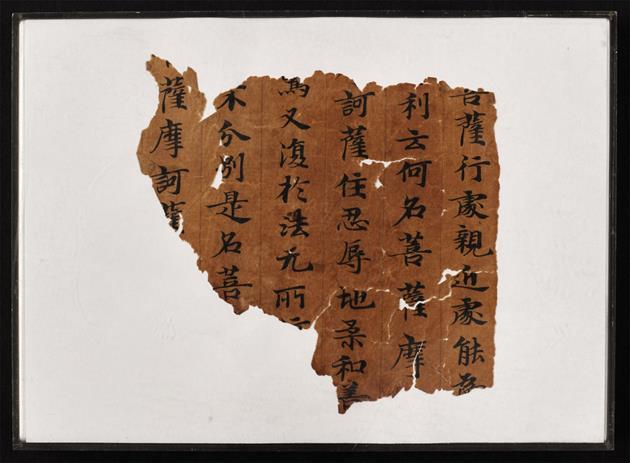 菩薩行處親近處能為
利云何名菩薩摩
訶薩住忍辱地柔和善
驚又復於法无所
不分別是名菩
薩摩訶薩